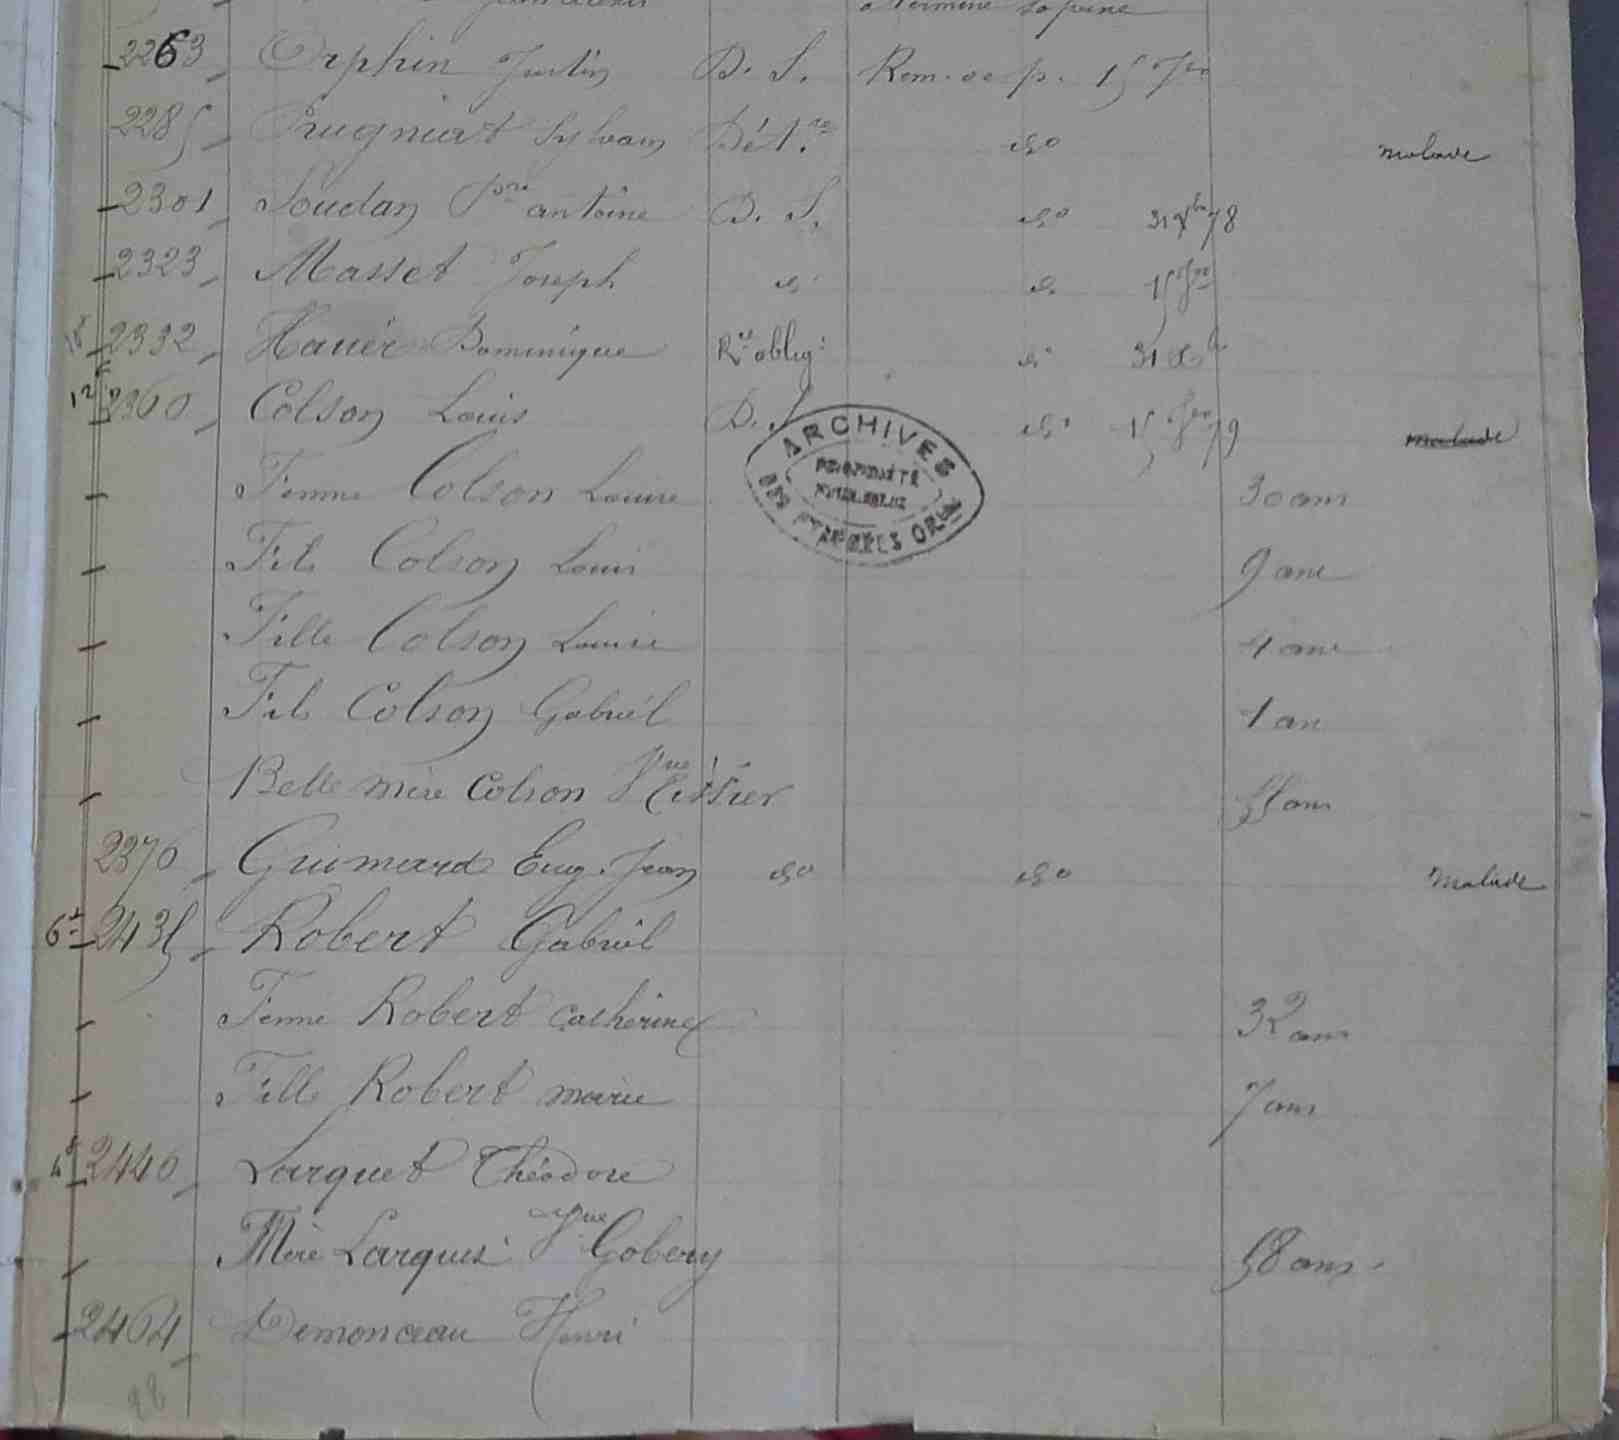 a terminé sa peine
2263 Orphin Justin D. S. Rem. de p. 15 7bre
2285 Prugniart Sylvain Dét.on do malade
2301 Soudan Pre antoine D. S. do 31 Xbre 78
2323 Masset Joseph d. d. 15
2332 Hauér Dominique Rce oblig: do 31
12 2360 Colson Louis D. S. do 15 79 malade
ARCHIVES
PROPRIÉTÉ
PUBLIQUE
Femme Colson Louise 30 ans
Fils Colson Louis 9 ans
Fille Colson Louise 4 ans
Fils Colson Gabriél 1 an
Belle mère Colson Vve 55 ans
2370 Guimard Eug. Jean do do Malade
6 2435 Robert Gabriél
Femme Robert Catherine 32 ans
Fille Robert marie 7 ans
4 2440 Larquet Théodore
Mère Larquet Vve Gobery 58 ans
2464 Demonceau Henri